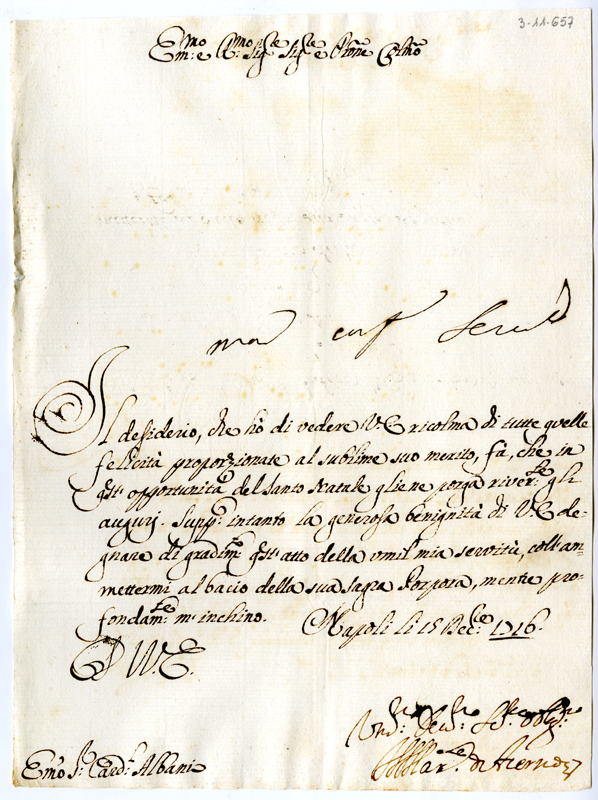 3-11-657
Em:mo e R:mo Sig:re Sig:re e Pñe Colño
Il desiderio, che hò di vedere V.E ricolma di tutte quelle
felicità proporzionate al sublime suo merito, fà, che in
qst' opportunità del Santo Natale gliene porga river:te gli
augurj. Suppco intanto la generosa benignità di V.E de-
gnare di gradim:to qst' atto della umilma mia servitù, coll'am-
mettermi al bacio della sua Sagra Porpora, mentre pro-
fondam:te m'inchino. Napoli li 15 Dec:re 1716.
D V.E.
Em:o Sr Card:l Albani